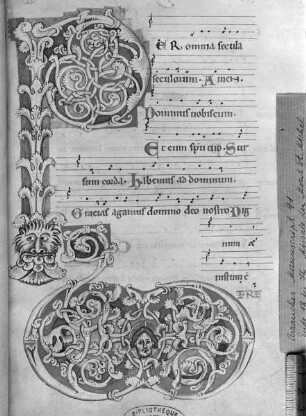 PER omnia secula
seculorum. Amen.
Dominus uobiscum.
Et cum spu tuo. Sur
sum corda. Habemus ad dominum.
Gracias agamus domino deo nostro. Dig
num &
iustum ē.
ERE
Avranches manuscript 41
BIBLIOTHEQUE